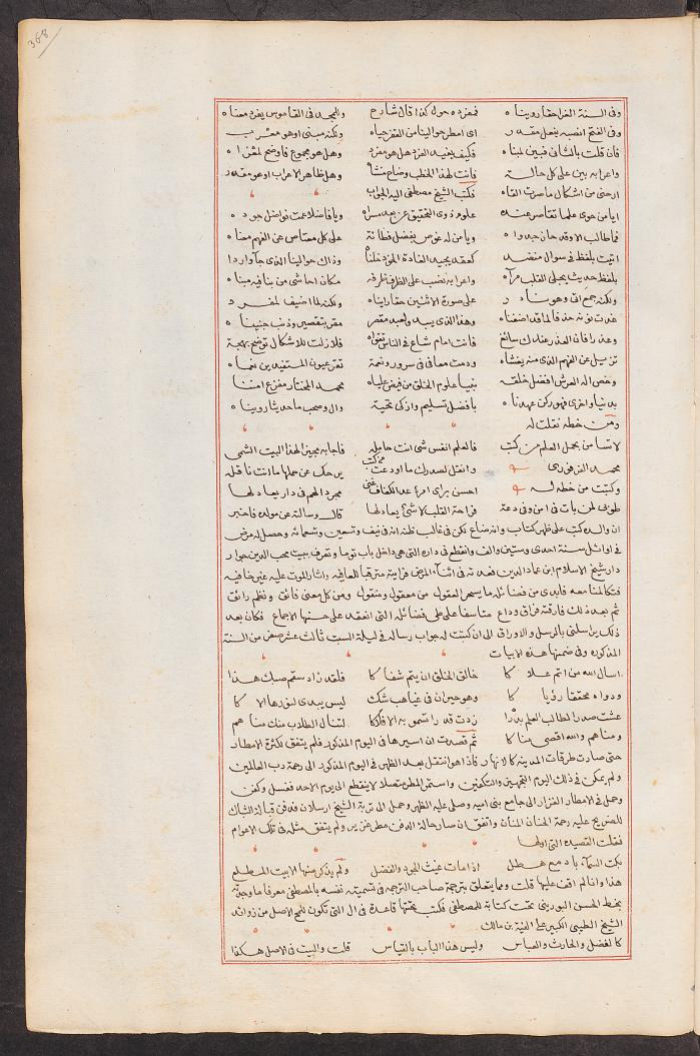 368
وفى السنة الغرا حقا روينا ه فمفرده حول كذا قال شارح والمجد فى القاموس يفرد معناه
وفى الفتح انصبه بفعل مقدر اى امطر حوالينا من الغيث حياه ولكنه مبنى او هو معرب
فان قلت بالثانى فبين لمبناه فكيف يفيد الفرد هل هو مفرد وهل هو مجموع فاوضح لمغزاه
واعرابه بين على كل حالة فانت لهذا الخطب وضاح منشاه وهل ظاهر الاعراب او هو مقدر
ارحنى من اشكال ما صرت القاه فكتب الشيخ مصطفى اليه الجواب
ايا من حوى علما تقاصر عنده علوم ذوى التحقيق عن بعد مسراه ويا فاضلا عمت فواضل جوده
فما طالب الا وقد حاز جدواه ويا من له غوص بفضل فطانة على كل معتاص عن الفهم معناه
اتيت بلفظ فى سوال منضد كعقد بجيد الغادة الخود خلناه وذاك حوالينا الذى جا واردا
بلفظ حديث يجلى القلب مرآه واعرابه نصب على الظرف ظرفه مكان احاشى من ينافيه مبناه
ولكنه جمع اتى وهو نادر على صورة الاثنين حقا راينا ه ولكنه لما اضيف لمفرد
غدت نونه حذفا لما قد اضفناه وهذا الذى يبديه لعبد مقصر مقر بتقصير وذنب جنيناه
وعذرا فان العذر عندك سائغ فانت امام شاع فى الناس تقواه فلا زلت للاشكال توضح بهجة
تزيل عن الفهم الذى منه يغشاه ودمت معافى فى سرور ونعمة تقر عيون المستفيدين نعماه
وخص اله العرش افضل خلقه بنيا علوم الخلق من فيض علياه محمد المختار مفزع امننا
بدنيا واخرى فهو ركن عهدناه بافضل تسليم وازكى تحية وال وصحب ما حديثا رويناه
ومن خطه نقلت له
لا تسأمن بحمل العلم من كتب فالعلم انفس شى انت حامله فاجابه مجيزا لهذا البيت الشمى
محمد الغزى واثقل لصدرك ما اودعت من كتب يريحك عن حملها ما انت ناقله
وكتبت من خطه له احسن براى امرئ عد الكفاف غنى مجرد الهم فى دار يعاد لها
طوبى لمن بات فى امن وفى دعة فراحة القلب لا شئ يعادلها قال وسالته عن مولده فاخبر
ان والده كتب على ظهر كتاب وانه ضاع لكن فى غالب ظنه انه فى نيف وتسعين وتسعمائة وحصل له مرض
فى اوائل سنة احدى وستين والف وانقطع فى داره التى هى داخل باب توما وتعرف ببيت محب الدين جوار
دار شيخ الاسلام ابن عماد الدين فعدته فى اثناء المرض فرايته مترقبا للعافيه واثار الموت عليه غير خافيه
فتكالمنا معه فابدى من فضائله ما يسحر العقول من معقول ومنقول ومن كل معنى فائق ونظم رائق
ثم بعد ذلك فارقته فراق وداع متاسفا على على فضائله التى انعقد على حسنها الاجماع فكان بعد
ذلك يراسلنى بالرسل والاوراق الى ان كتبت له جواب رسالة فى ليلة السبت ثالث عشر صفر من السنة
المذكوره وفى ضمنها هذه الابيات
اسال الله من اتم علاكا خالق الخلق ان يتم شفاكا فلقد زاد سقم صبك هذا
ودواه محققا رؤياكا وهو حيران فى غياهب شك ليس يبدى لنورها الاكا
عشت صدرا لطالب العلم بدرا زدت قدرا تسمو به الافلاكا لتنال الطلاب منك مناهم
ومناهم والله اقصى مناكا ثم قصدت ان اسيرها فى اليوم المذكور فلم يتفق لكثرة الامطار
حتى صارت طرقات المدينة كالانهار فاذا هو انتقل بعد الظهر فى اليوم المذكور الى رحمة رب العالمين
ولم يمكن فى ذلك اليوم التجهيز والتكفين واستمر المطر متصلا لا ينقطع الى يوم الاحد فغسل وكفن
وحمل فى الامطار الغزار الى جامع بنى اميه وصلى عليه الظهر وحمل الى تربة الشيخ ارسلان فدفن قبالة الشباك
للضريح عليه رحمة الحنان المنان واتفق ان صار حالة الدفن مطر غزير ولم يتفق مثله فى تلك الاعوام
فقلت القصيده التى اولها
بكت السماء بادمع هطل اذا مات غيث الجود والفضل ولم يذكر منها الا بيت المطلع
هذا وانا لم اقف عليها قلت ومما يتعلق بترجمة صاحب الترجمة فى تسميته نفسه بالمصطفى معرفا ما وجدته
بخط الحسن البورينى تحت كتابة للمصطفى فكتب تحتها قاعدة فى ال التى تكون للمح الاصل من زوائد
الشيخ الطيبى الكبير على الفية بن مالك
كالفضل والحارث والعباس وليس هذا الباب بالقياس قلت والبيت فى الاصل هكذا